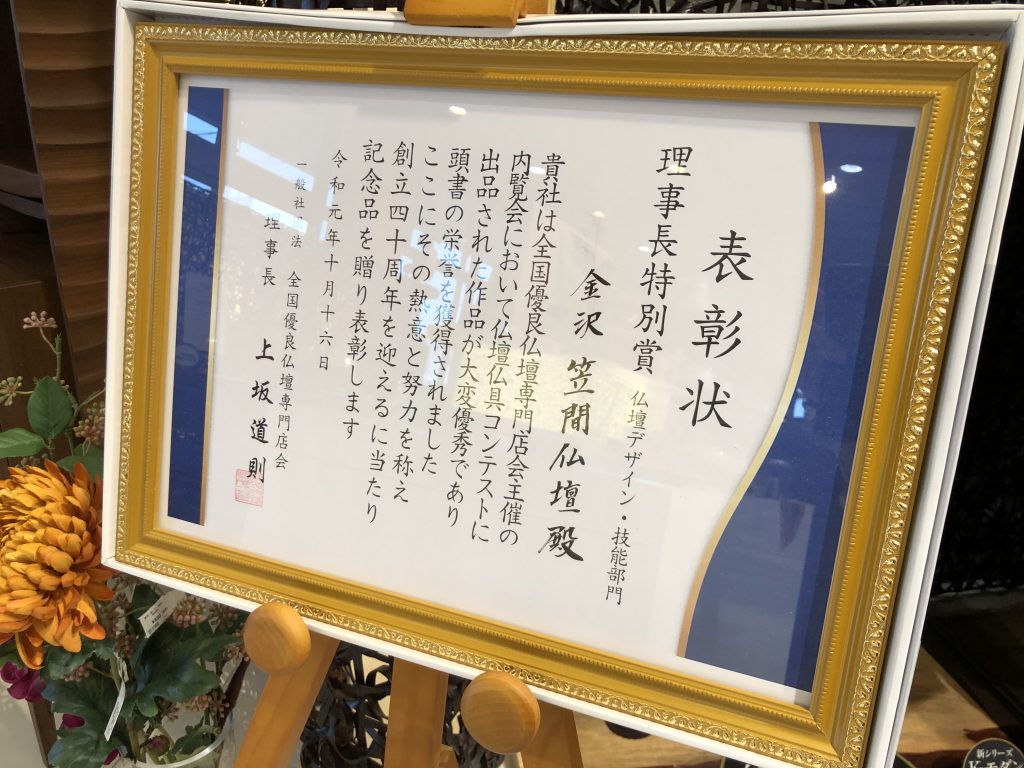 表彰状
理事長特別賞 仏壇デザイン・技能部門
金沢 笠間仏壇殿
貴社は全国優良仏壇専門店会主催の
内覧会において仏壇仏具コンテストに
出品された作品が大変優秀であり
頭書の栄誉を獲得されました
ここにその熱意と努力を称え
創立四十周年を迎えるに当たり
記念品を贈り表彰します
令和元年十月十六日
一般社団法 全国優良仏壇専門店会
理事長 上坂道則
新シリーズ